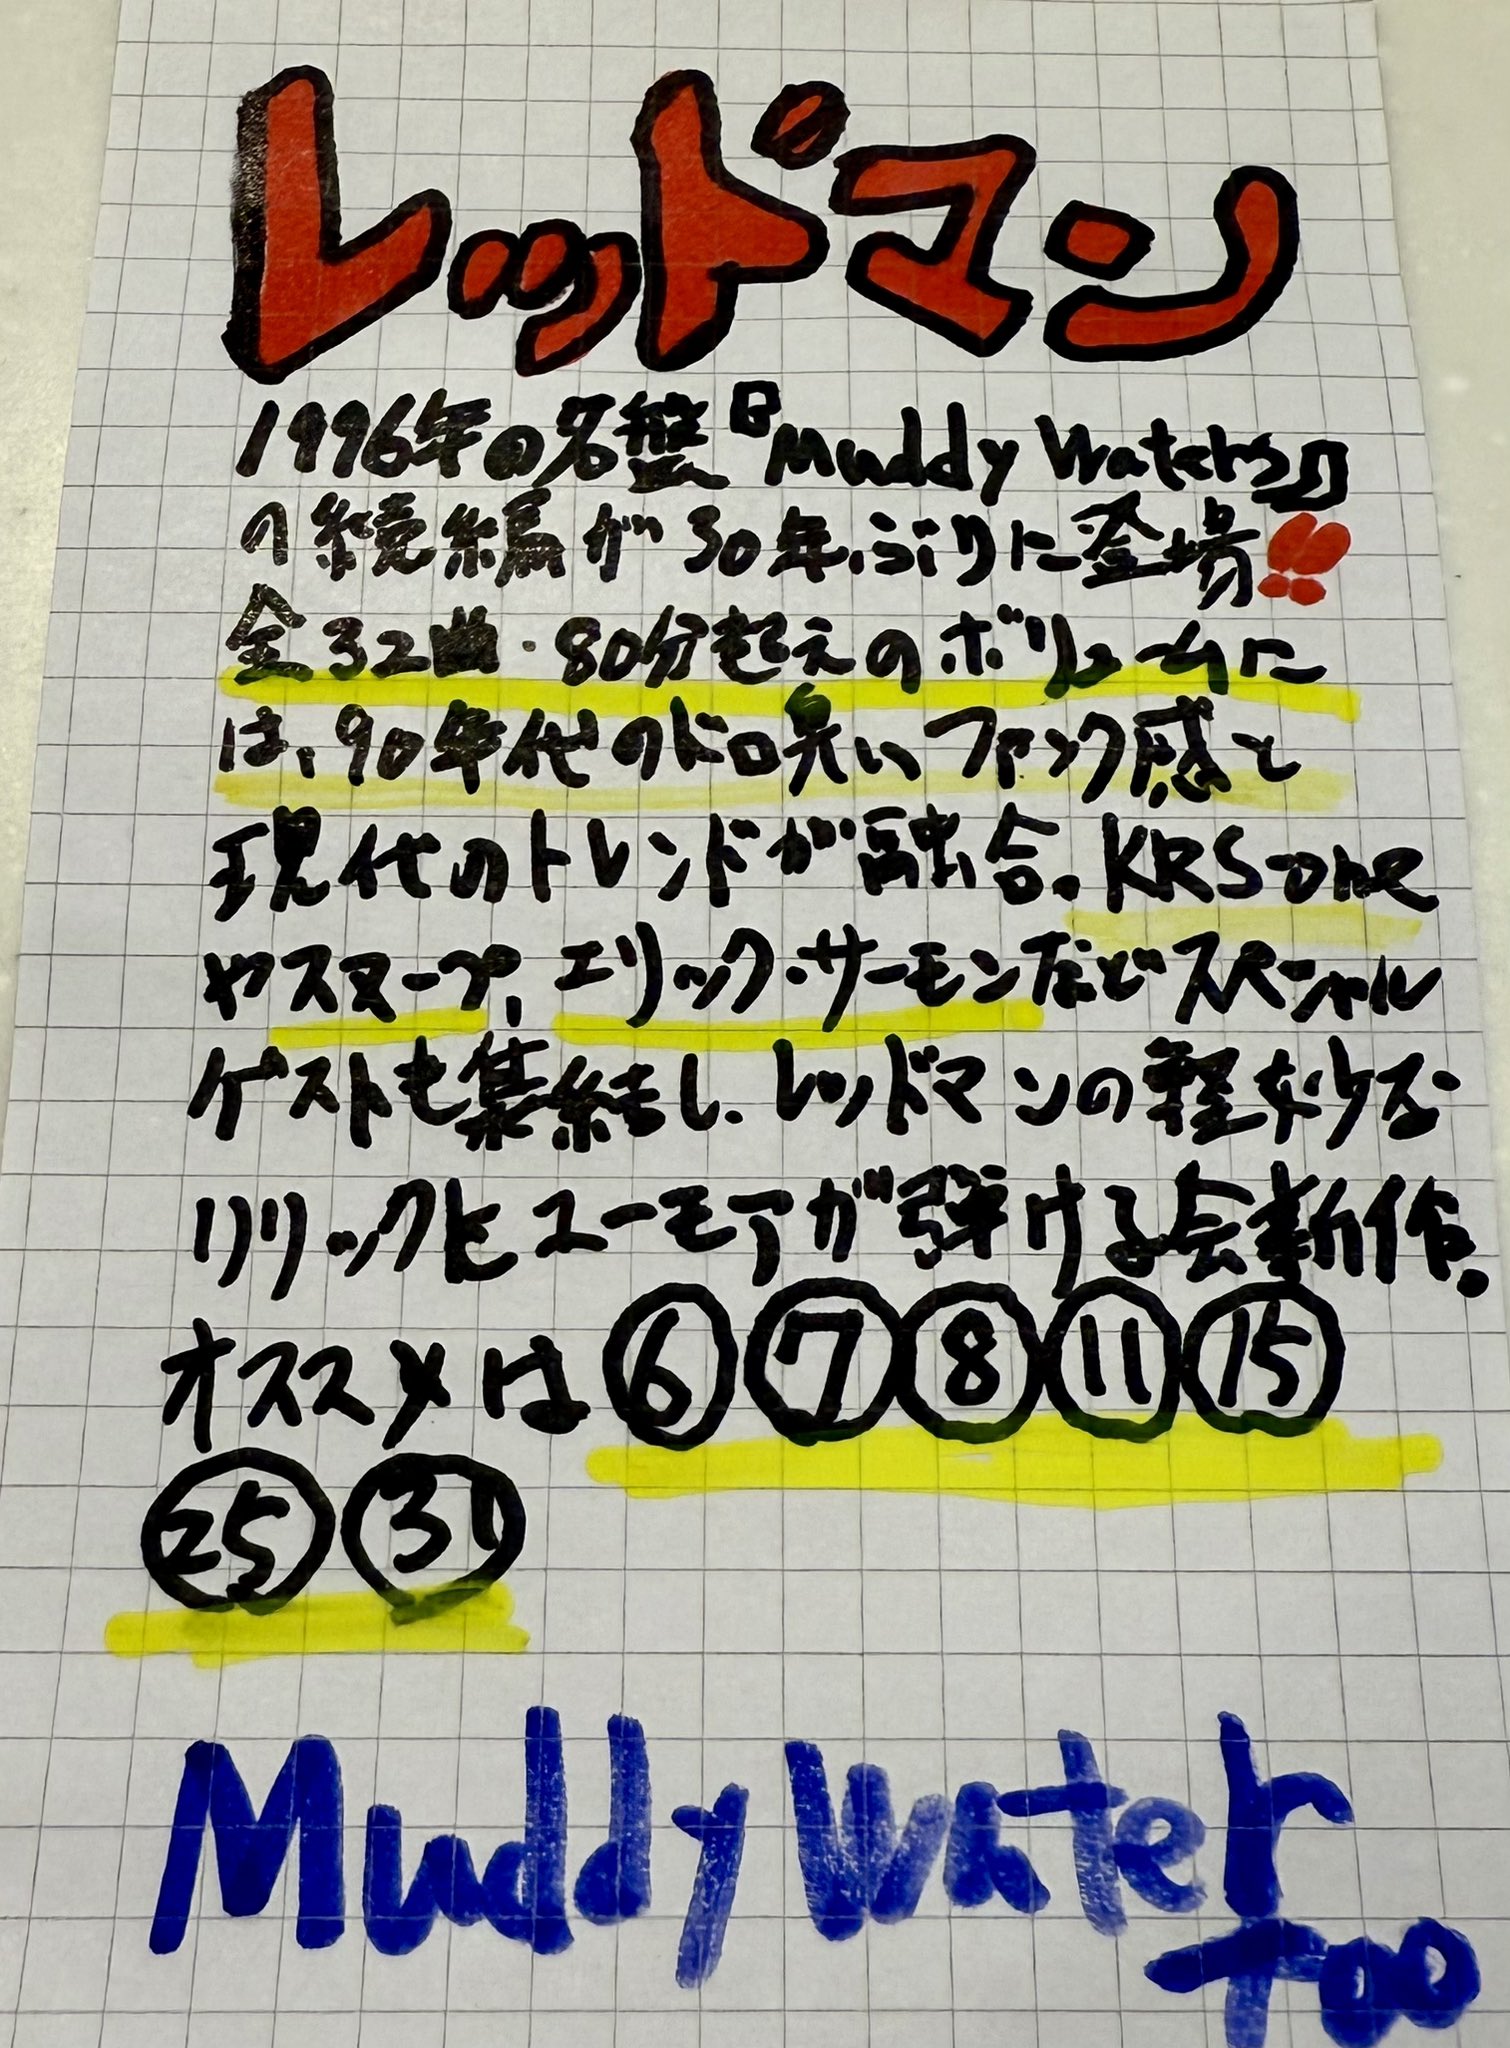 レッドマン
1996年の名盤『Muddy Waters』
の続編が30年ぶりに登場!!
全32曲・80分超えのボリュームに
は、90年代のドロ臭いファンク感と
現代のトレンドが融合。KRS-one
やスヌープ、エリック・サーモンなどスペシャル
ゲストも集結し、レッドマンの軽妙な
リリックとユーモアが弾ける会新作。
オススメは⑥⑦⑧⑪⑮
㉕㉛
Muddy Water
too